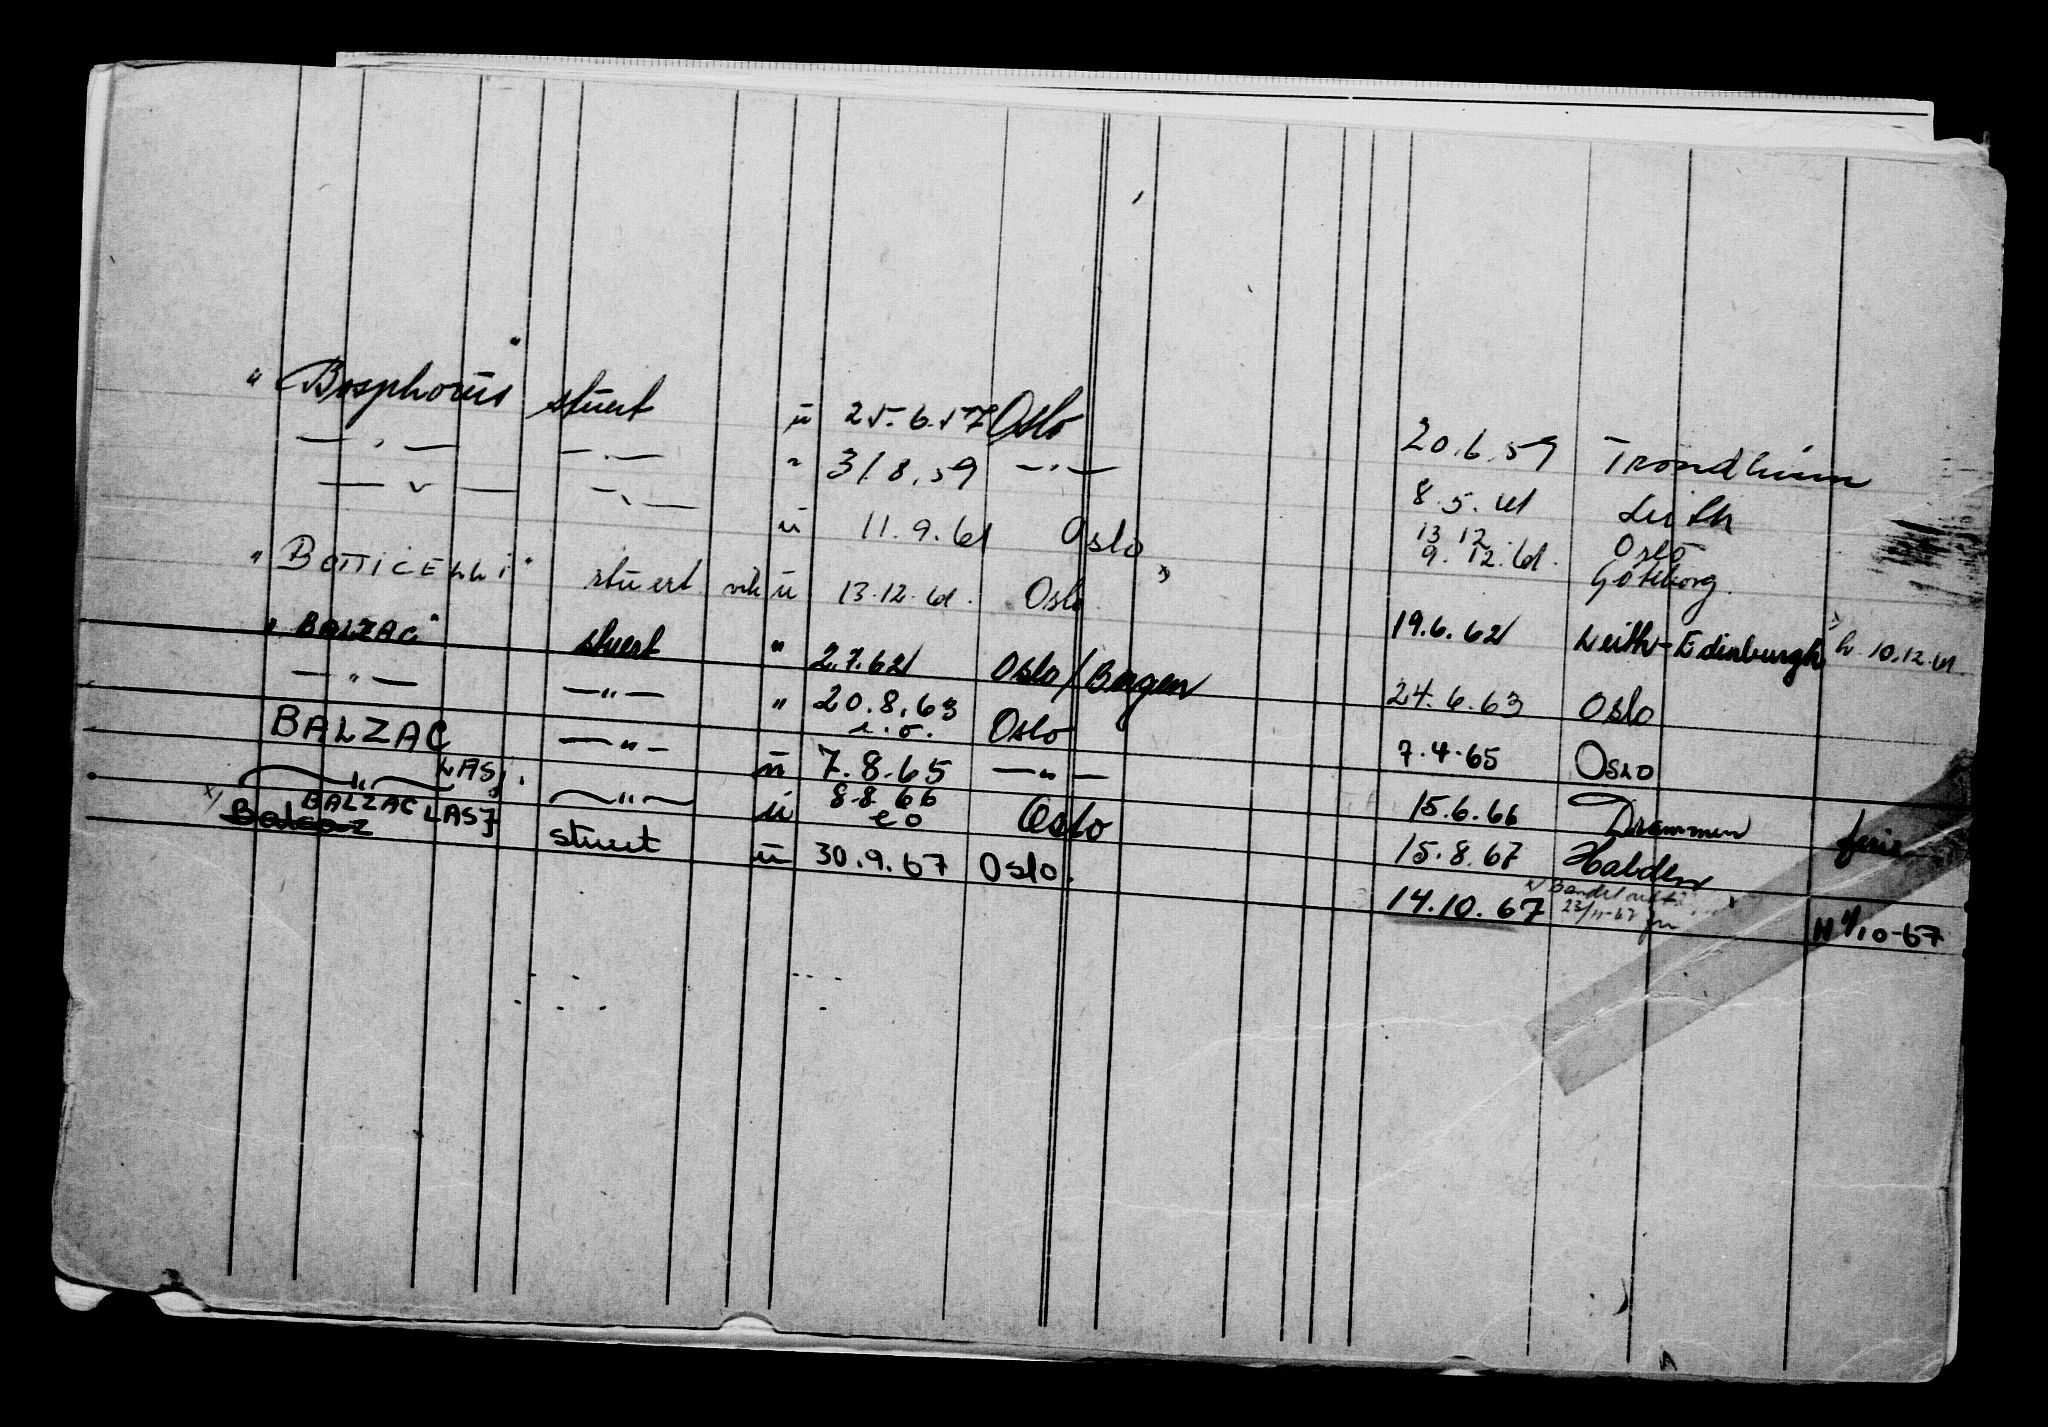 "Bosphorus" stuert u 25.6.57 Oslo 20.6.59 Trondheim
— " — — " — " 31.8.59 — " — 8.5.61 Leith
— " — — " — u 11.9.61 Oslo 13.12. Oslo
9.12.61. Göteborg.
"BOTTICELLI" stuert vik u 13.12.61. Oslo. x) 19.6.62 Leith-Edinburgh x) h. 10.12.61
"BALZAC" stuert " 2.7.62 Oslo/Bergen 24.6.63 Oslo
— " — — " — " 20.8.63 Oslo 7.4.65 Oslo
e.o.
BALZAC LASJ. — " — u 7.8.65 — " — 15.6.66 Drammen ferie
— " — — " — u 8.8.66 Oslo 15.8.67 Halden
e o
x) BALZAC LASJ stuert u 30.9.67 Oslo. 14.10.67 H 4/10-67
23/11-67